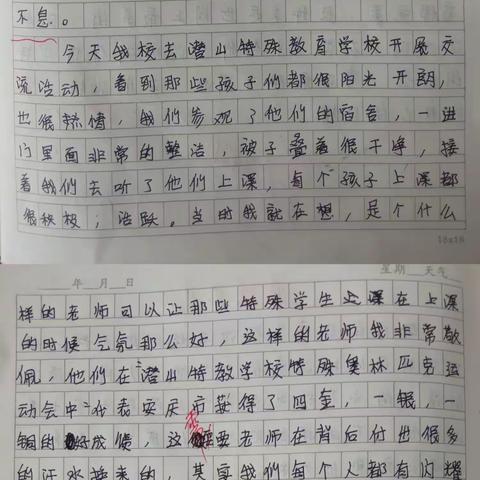 不息。
今天我校去潜山特殊教育学校开展交
流活动，看到那些孩子们都很阳光开朗，
也很热情，我们参观了他们的宿舍，一进
门里面非常的整洁，被子叠着很干净，接
着我们去听了他们上课，每个孩子上课都
很积极；活跃。当时我就在想，是个什么
18x18
年 月 日
星期 天气
样的老师可以让那些特殊学生在上课
的时候气氛那么好，这样的老师我非常敬
佩，他们在潜山特教学校特殊奥林匹克运
动会中代表安庆市获得了四金，一银，一
铜的好成绩，这需要老师在背后付出很多
的汗水换来的，其实我们每个人都有闪耀